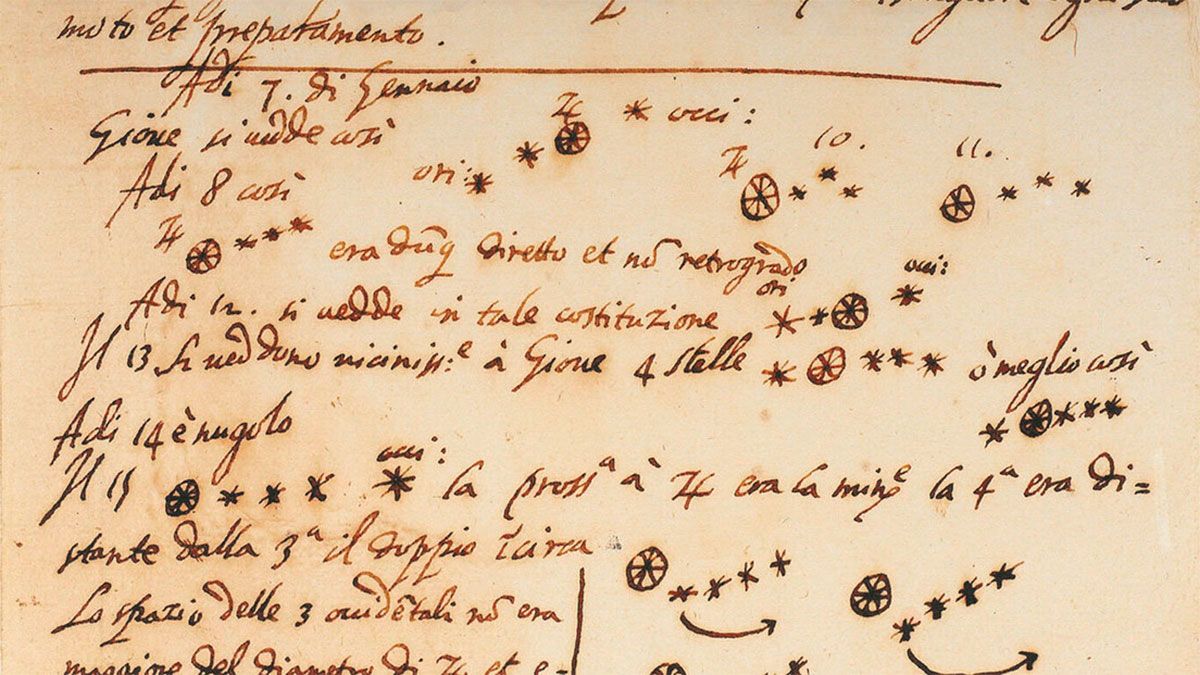 moto et preparamento.
Adi 7. di Gennaio
Gioue si uedde così ♃ occi:
ori: ♃ 10. 11.
Adi 8 così
♃ era dũq diretto et nõ retrogrado
ori occi:
Adi 12. si uedde in tale costituzione
Il 13 si ueddono uiciniss:e à Gioue 4 stelle ò meglio così
Adi 14 è nugolo
occi:
Il 15 la pross.a à ♃ era la min.e la 4.a era di=
stante dalla 3.a il doppio ĩcirca
Lo spazio delle 3 occidẽtali nõ era
maggiore del diametro di ♃ et e-